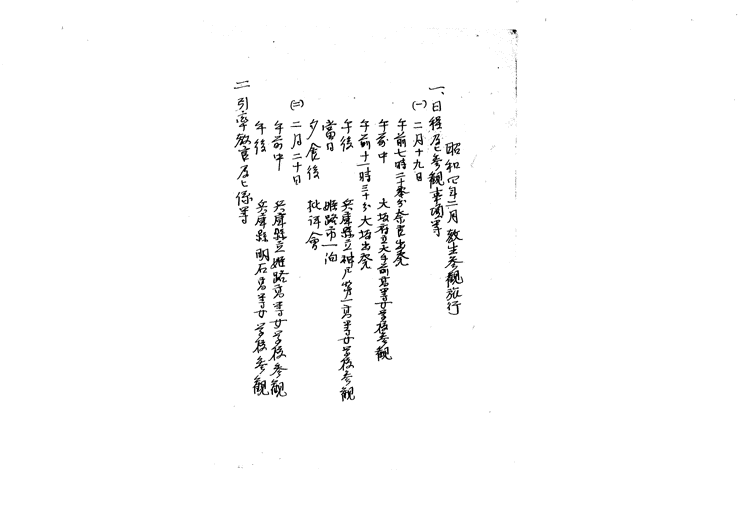 昭和四年二月 教生参観旅行
一、日程及ヒ参観事項等
(一) 二月十九日
午前七時二十零分奈良出発
午前中 大坂府立大手前高等女学校参観
午前十一時三十分大坂出発
午後 兵庫縣立神戸第一高等女学校参観
當日 姫路市一泊
夕食後 批評会
(二) 二月二十日
午前中 兵庫縣立姫路高等女学校参観
午後 兵庫縣明石高等女学校参観
二 引率教官及ヒ係等